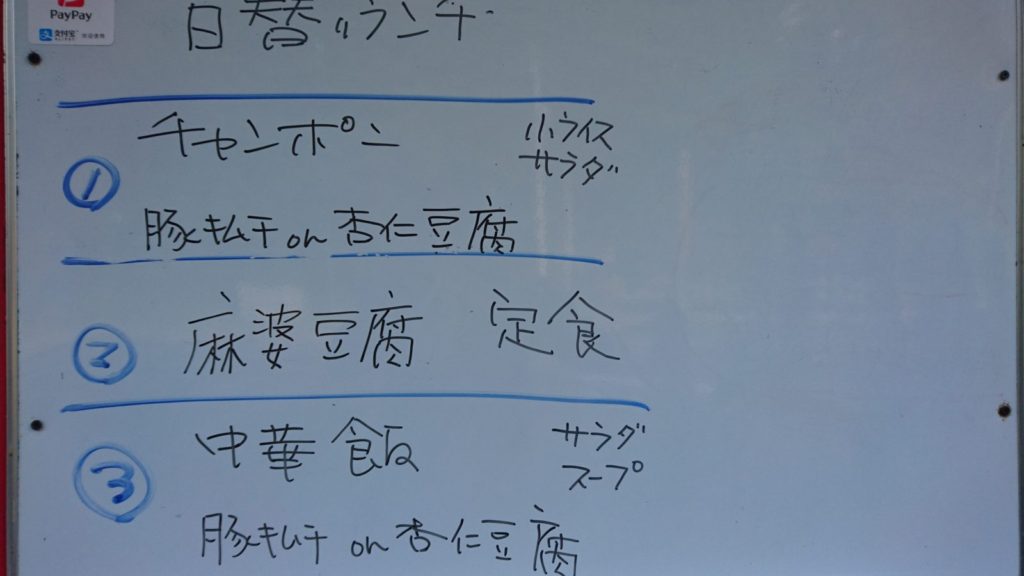 PayPay
支付宝
日替りランチ
チャンポン 小ライス
サラダ
①
豚キムチ on 杏仁豆腐
② 麻婆豆腐 定食
③ 中華飯 サラダ
スープ
豚キムチ on 杏仁豆腐